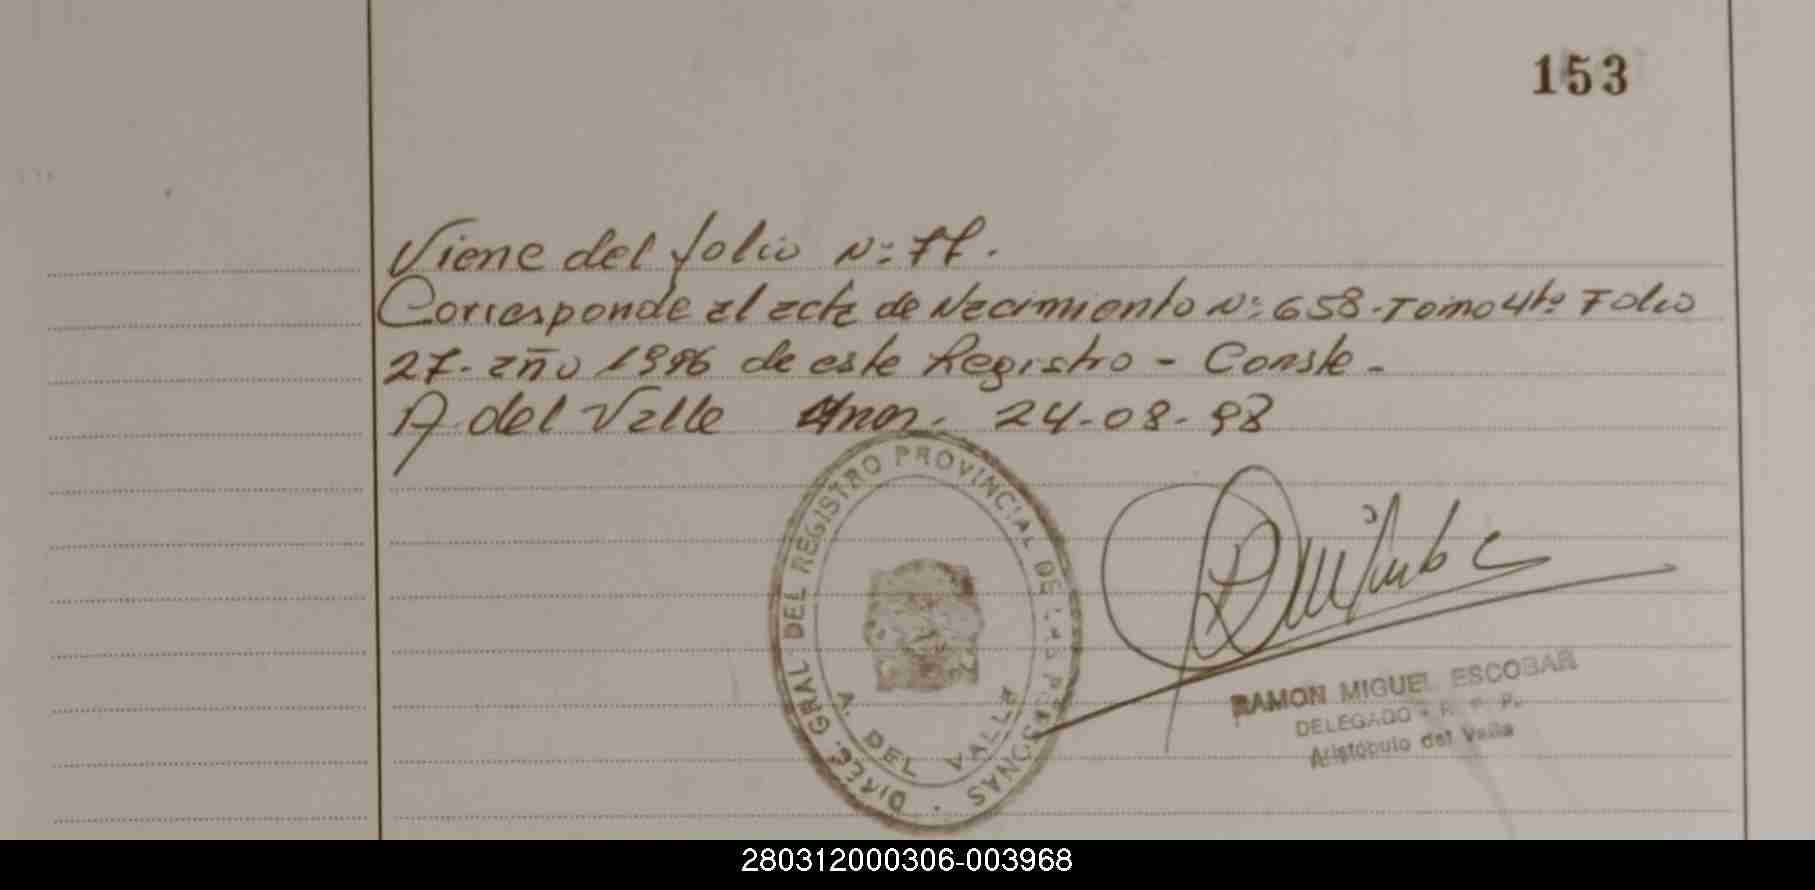 153
Viene del folio Nº: 77.
Corresponde al acta de Nacimiento Nº: 658-Tomo 4to Folio
27- año 1996 de este Registro - Conste -
A. del Valle Mnes. 24-08-98
DIREC. GRAL. DEL REGISTRO PROVINCIAL DE LAS PERSONAS
A. DEL VALLE
RAMON MIGUEL ESCOBAR
DELEGADO - R. P. P.
Aristóbulo del Valle
280312000306-003968